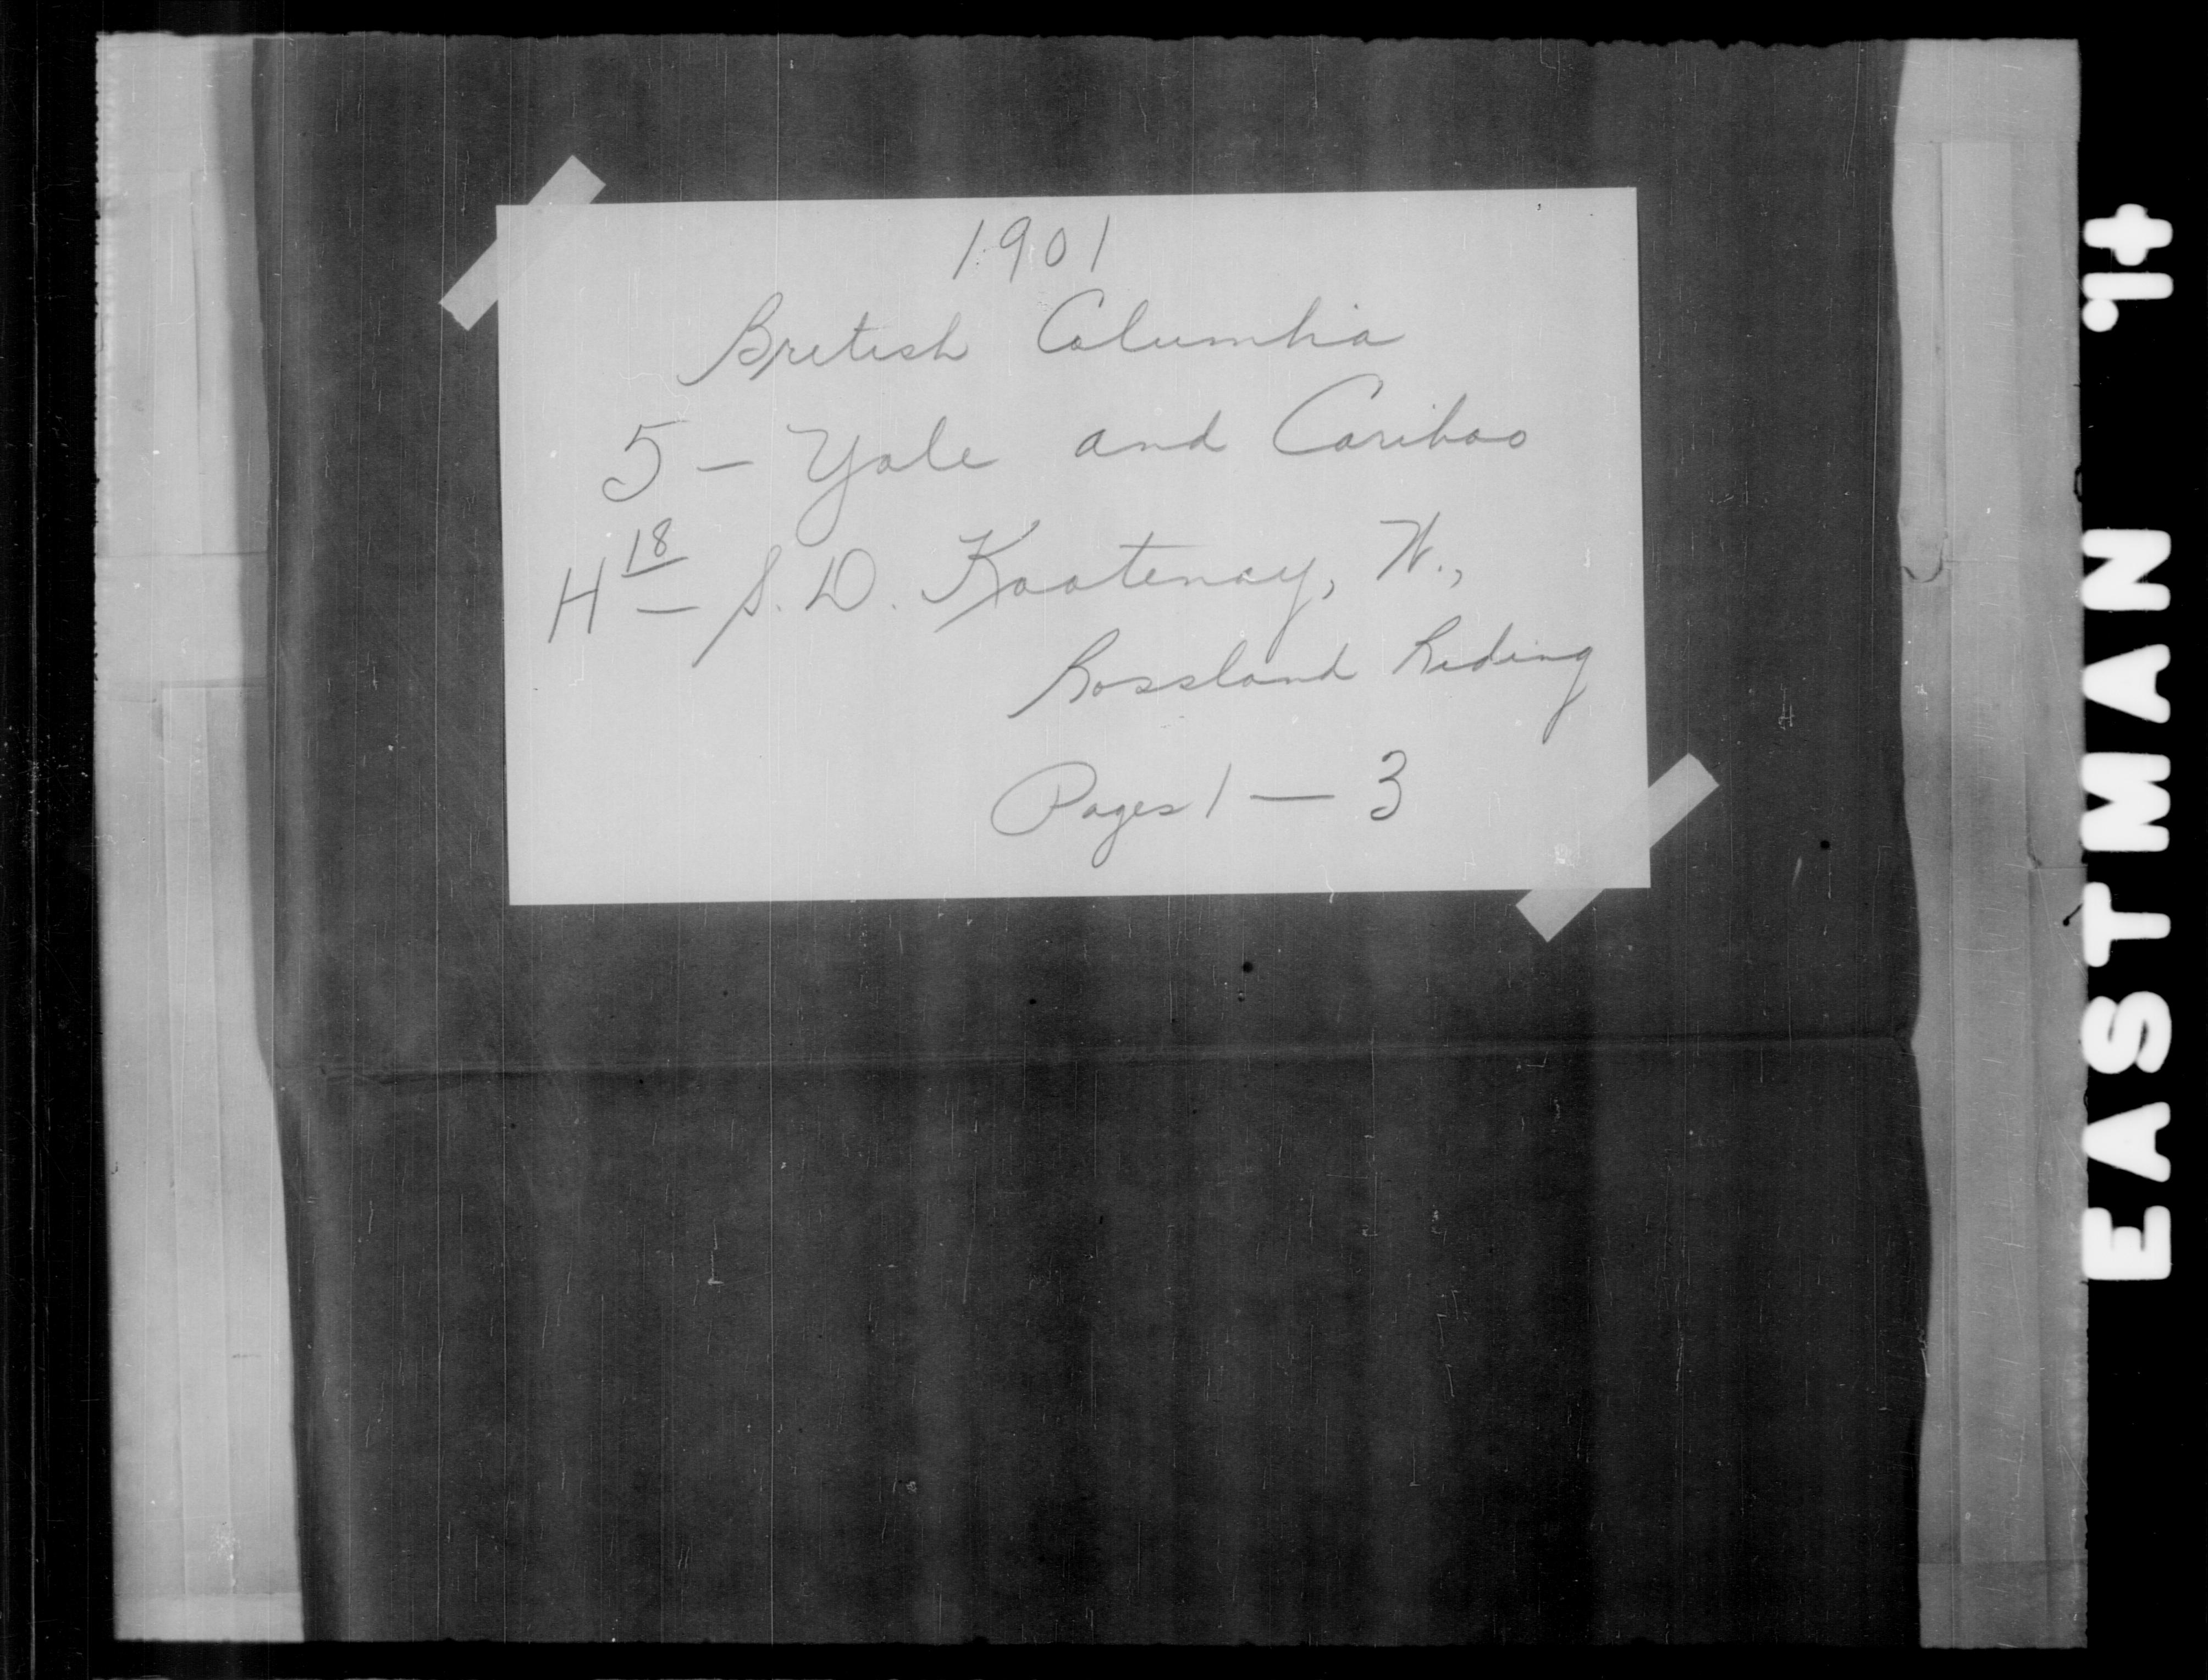 1901
British Columbia
5 - Yale and Cariboo
H 18 - S. D. Kootenay, W.,
Rossland Riding
Pages 1 — 3
EASTMAN